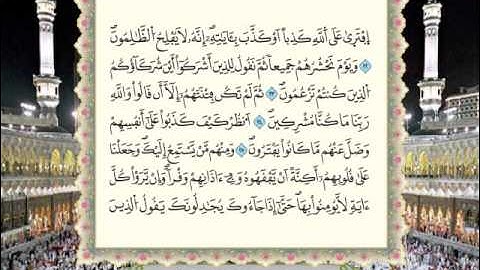 اِفْتَرىٰ عَلَى اَللَّهِ كَذِباً اَوْ كَذَّبَ بِـَٔايَٰتِهِۦٓۖ إِنَّهُۥ لَا يُفْلِحُ اُلظَّٰلِمُونَۖ
وَيَوْمَ نَحْشُرُهُمْ جَمِيعاً ثُمَّ نَقُولُ لِلذِينَ أَشْرَكُوٓاْ أَيْنَ شُرَكَآؤُكُمُ
اُلذِينَ كُنتُمْ تَزْعُمُونَۖ ثُمَّ لَمْ تَكُن فِتْنَتَهُمُۥٓ إِلَّآ أَن قَالُواْ وَاللَّهِ
رَبِّنَا مَا كُنَّا مُشْرِكِينَۖ اَنظُرْ كَيْفَ كَذَبُواْ عَلَىٰٓ أَنفُسِهِمْ
وَضَلَّ عَنْهُم مَّا كَانُواْ يَفْتَرُونَۖ وَمِنْهُم مَّنْ يَّسْتَمِعُ إِلَيْكَۖ وَجَعَلْنَا
عَلَىٰ قُلُوبِهِمُۥٓ أَكِنَّةً أَنْ يَّفْقَهُوهُ وَفِےٓ ءَاذَانِهِمْ وَقْراًۖ وَإِنْ يَّرَوْاْ كُلَّ
ءَايَةٍ لَّا يُؤْمِنُواْ بِهَاۖ حَتَّىٰٓ إِذَا جَآءُوكَ يُجَٰدِلُونَكَ يَقُولُ اُلذِينَ